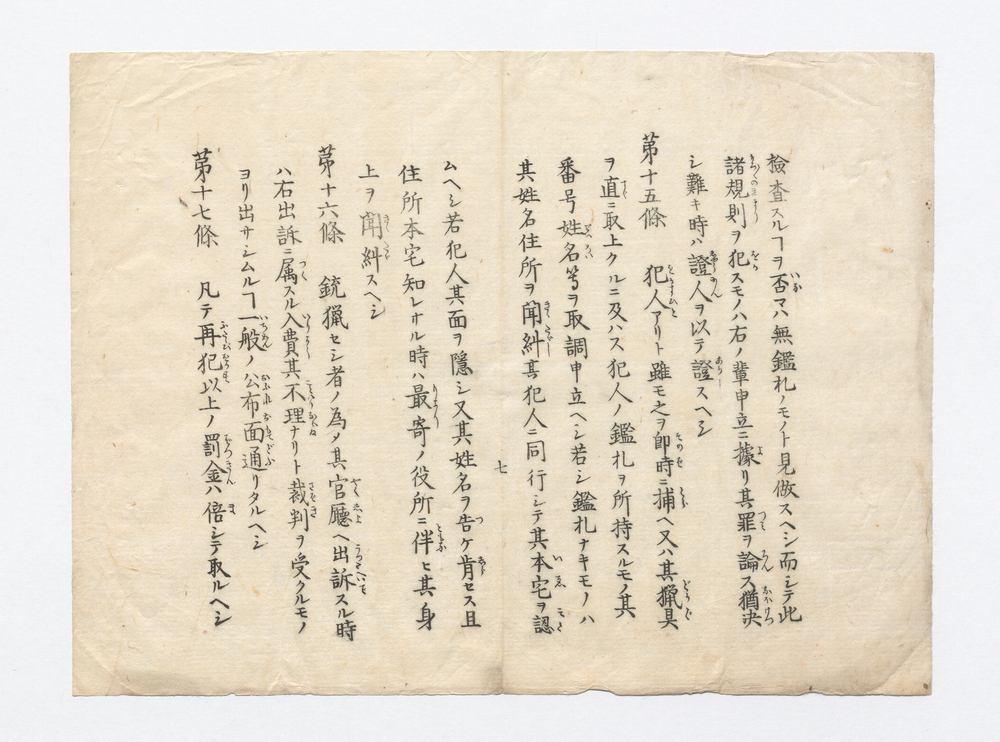 檢査スルヿヲ否マハ無鑑札ノモノト見做スヘシ而シテ此
諸規則ヲ犯スモノハ右ノ輩申立ニ據リ其罪ヲ論ス猶決
シ難キ時ハ證人ヲ以テ證スヘシ
第十五條　犯人アリト雖モ之ヲ即時ニ捕ヘ又ハ其獵具
ヲ直ニ取上クルニ及ハス犯人ノ鑑札ヲ所持スルモノ其
番号姓名等ヲ取調申立ヘシ若シ鑑札ナキモノハ
其姓名住所ヲ聞糾其犯人ニ同行シテ其本宅ヲ認
七
ムヘシ若犯人其面ヲ隱シ又其姓名ヲ告ケ肯セス且
住所本宅知レサル時ハ最寄ノ役所ニ伴ヒ其身
上ヲ聞糾スヘシ
第十六條　銃獵セシ者ノ為メ其官廳ヘ出訴スル時
ハ右出訴ニ属スル入費其不理ナリト裁判ヲ受クルモノ
ヨリ出サシムルヿ一般ノ公布面通リタルヘシ
第十七條　凡テ再犯以上ノ罰金ハ倍シテ取ルヘシ